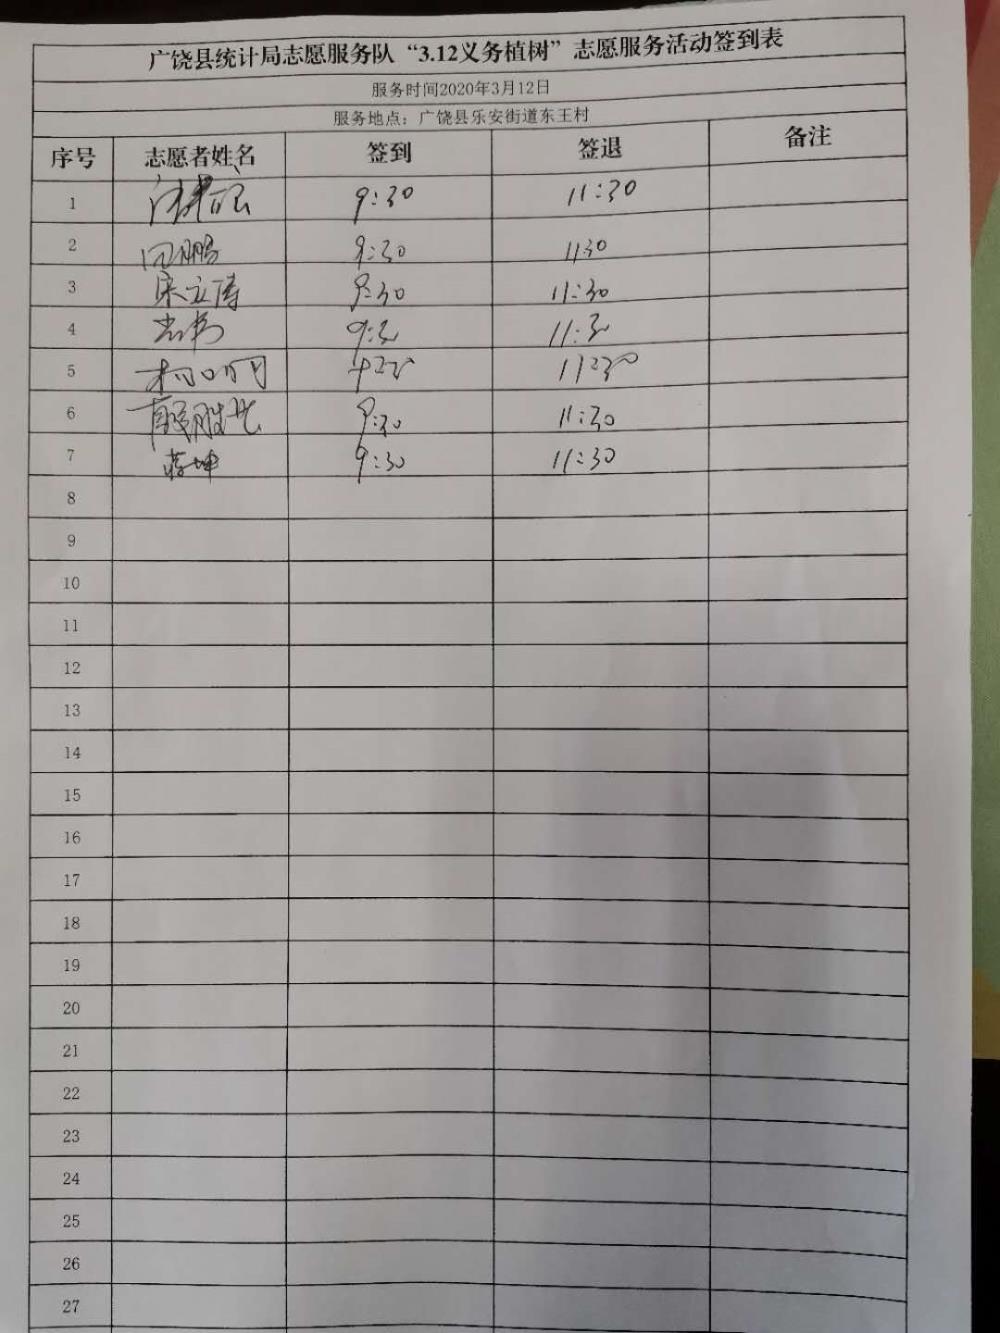 广饶县统计局志愿服务队“3.12义务植树”志愿服务活动签到表
服务时间2020年3月12日
服务地点：广饶县乐安街道东王村
序号 志愿者姓名 签到 签退 备注
1 9:30 11:30
2 鹏 9:30 1130
3 宋立涛 9:30 11:30
4 9:30 11:30
5
6 胜 9:30 11:30
7 蒋坤 9:30 11:30
8
9
10
11
12
13
14
15
16
17
18
19
20
21
22
23
24
25
26
27